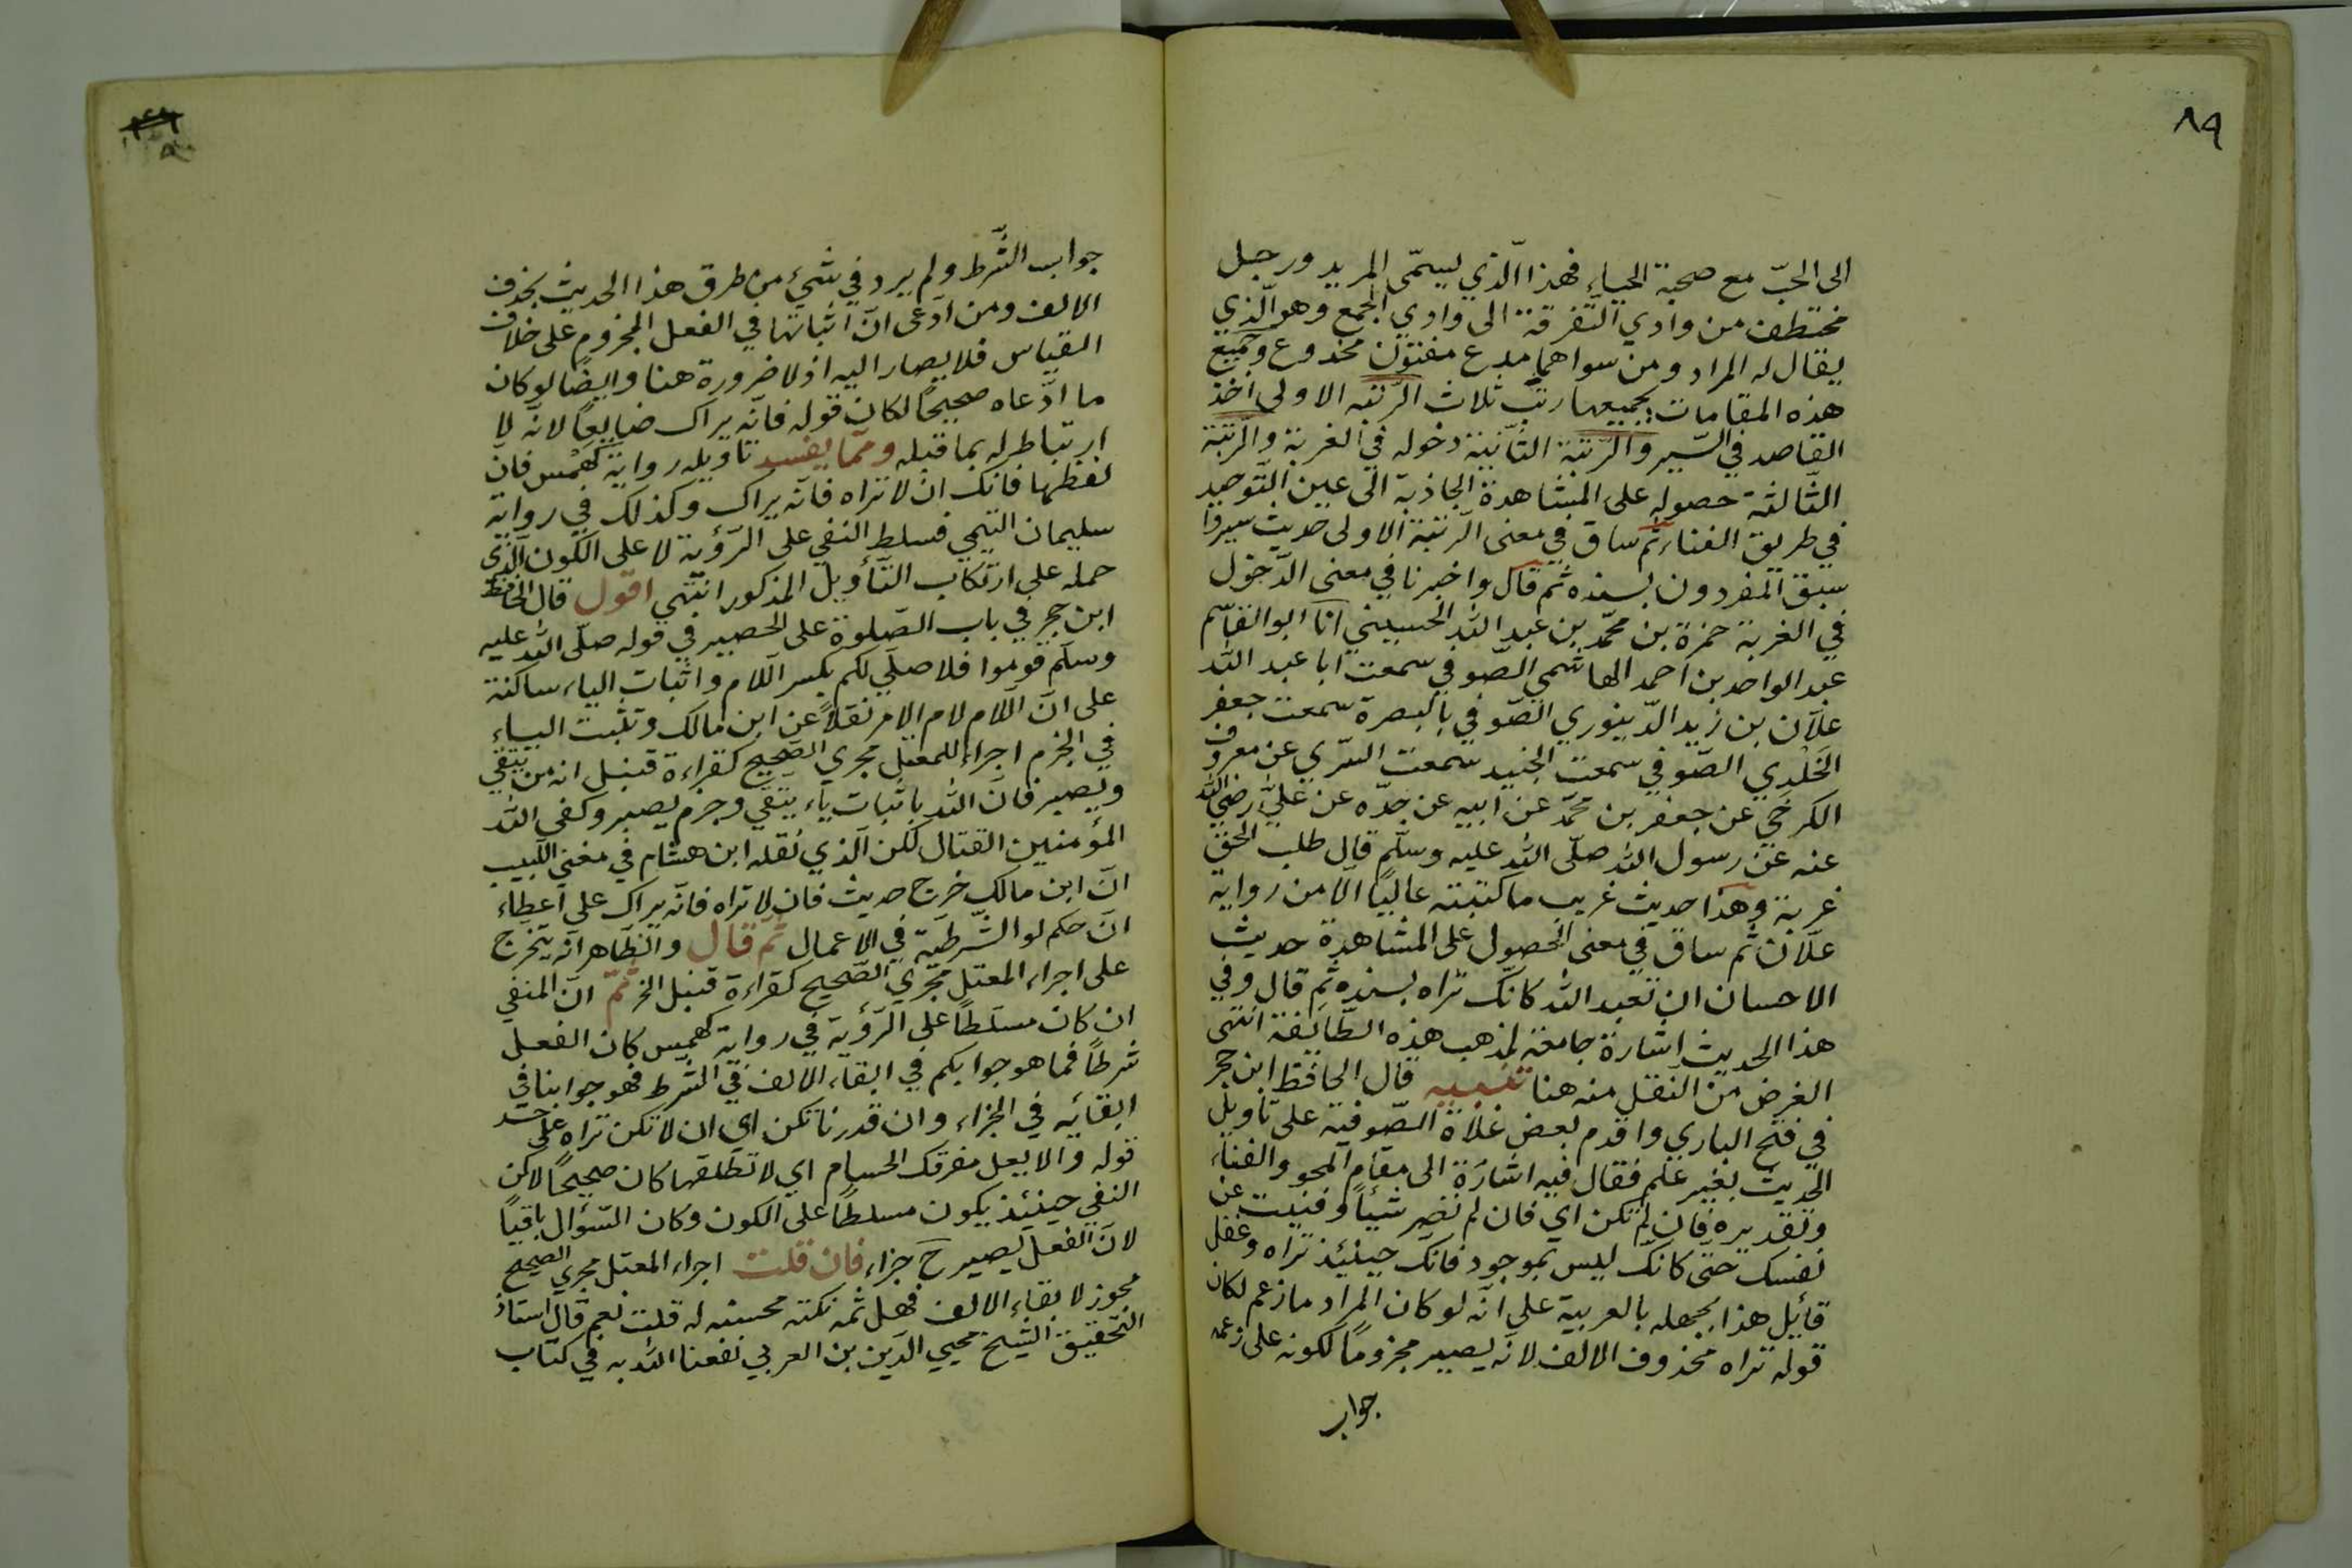 ٨٩
الى الحبّ مع صحبة الحياء فهذا الّذي يسمّى المريد ورجل
مختطف من وادي التّفرقة الى وادي الجمع وهو الّذي
يقال له المراد ومن سواهما مدع مفتون مخدوع وجميع
هذه المقامات بجميعها رتب ثلاث الرّتبه الاولى اخذ
القاصد في السّير والرّتبة الثّانية دخوله في الغربة والرّتبة
الثّالثة حصوله على المشاهدة الجاذبة الى عين التّوحيد
في طريق الفناء ثم ساق في معنى الرتبة الاولى حديث سيروا
سبق المفردون بسنده ثم قال واخبرنا في معنى الدّخول
في الغربة حمزة بن محمّد بن عبد الله الحسيني انا ابو القاسم
عبد الواحد بن احمد الهاشمي الصّوفي سمعت ابا عبد الله
علّان بن زيد الدّينوري الصّوفي بالبصرة سمعت جعفر
الخَلْدي الصّوفي سمعت الجنيد سمعت السّري عن معروف
الكرخي عن جعفر بن محمّد عن ابيه عن جدّه عن عليّ رضي الله
عنه عن رسول الله صلّى الله عليه وسلّم قال طلب الحقّ
غربة وهذا حديث غريب ما كتبته عاليًا الّا من رواية
علّان ثم ساق في معنى الحصول على المشاهدة حديث
الاحسان ان تعبد الله كانّك تراه بسنده ثم قال وفي
هذا الحديث اشارة جامعة لمذهب هذه الطّائفة انتهى
الغرض من النقل منه هنا تنبيه قال الحافظ ابن حجر
في فتح الباري واقدم بعض غلاة الصّوفية على تاويل
الحديث بغير علم فقال فيه اشارة الى مقام المحو والفناء
وتقديره فان لم تكن اي فان لم تصر شيئاً وفنيت عن
نفسك حتّى كانّك ليس بموجود فانّك حينئذ تراه وغفل
قائل هذا بجهله بالعربية على انّه لو كان المراد ما زعم لكان
قوله تراه محذوف الالف لانّه يصير مجزومًا لكونه على زعمه
جواب
جواب الشّرط ولم يرد في شيء من طرق هذا الحديث بحذف
الالف ومن ادّعى انّ اثباتها في الفعل المجزوم على خلاف
القياس فلا يصار اليه اذ لا ضرورة هنا وايضًا لو كان
ما ادّعاه صحيحًا لكان قوله فانّه يراك ضايعًا لانّه لا
ارتباط له بما قبله وممّا يفسد تاويله رواية كَهْمَس فانّ
لفظها فانّك ان لا تراه فانّه يراك وكذلك في رواية
سليمان التيمي فسلط النفي على الرّؤية لا على الكون الّذي
حمله على ارتكاب التّأويل المذكور انتهى اقول قال الحافظ
ابن حجر في باب الصّلوة على الحصير في قوله صلّى الله عليه
وسلّم قوموا فلاصلّي لكم بكسر اللام واثبات الياء ساكنة
على انّ اللّام لام الامر نقلاً عن ابن مالك وتثبت الياء
في الجزم اجراء للمعتل مجرى الصّحيح كقراءة قنبل انه من يتقي
ويصبر فانّ الله باثبات ياء يتقي وجزم يصبر وكفى الله
المؤمنين القتال لكن الّذي نقله ابن هشام في مغني اللّبيب
انّ ابن مالك خرج حديث فان لا تراه فانّه يراك على اعطاء
انّ حكم لو الشّرطيّة في الاعمال ثم قال والظّاهر انّه يتخرج
على اجراء المعتل مجرى الصّحيح كقراءة قنبل الخ ثمّ انّ المنفي
ان كان مسلّطًا على الرّؤية في رواية كهمس كان الفعل
شرطًا فما هو جوابكم في ابقاء الالف في الشرط فهو جوابنا في
ابقائه في الجزاء وان قدرنا تكن اي ان لا تكن تراه على حد
قوله والا يعل مفرقك الحسام اي لا تطلقها كان صحيحًا لاكن
النفي حينئذ يكون مسلطًا على الكون وكان السّؤال باقيًا
لانّ الفعل يصير ح جزاء فان قلت اجراء المعتل مجرى الصحيح
مجوز لا بقاء الالف فهل ثمه نكتة محسنه له قلت نعم قال استاذ
التحقيق الشيخ محيي الدّين بن العربي نفعنا الله به في كتاب